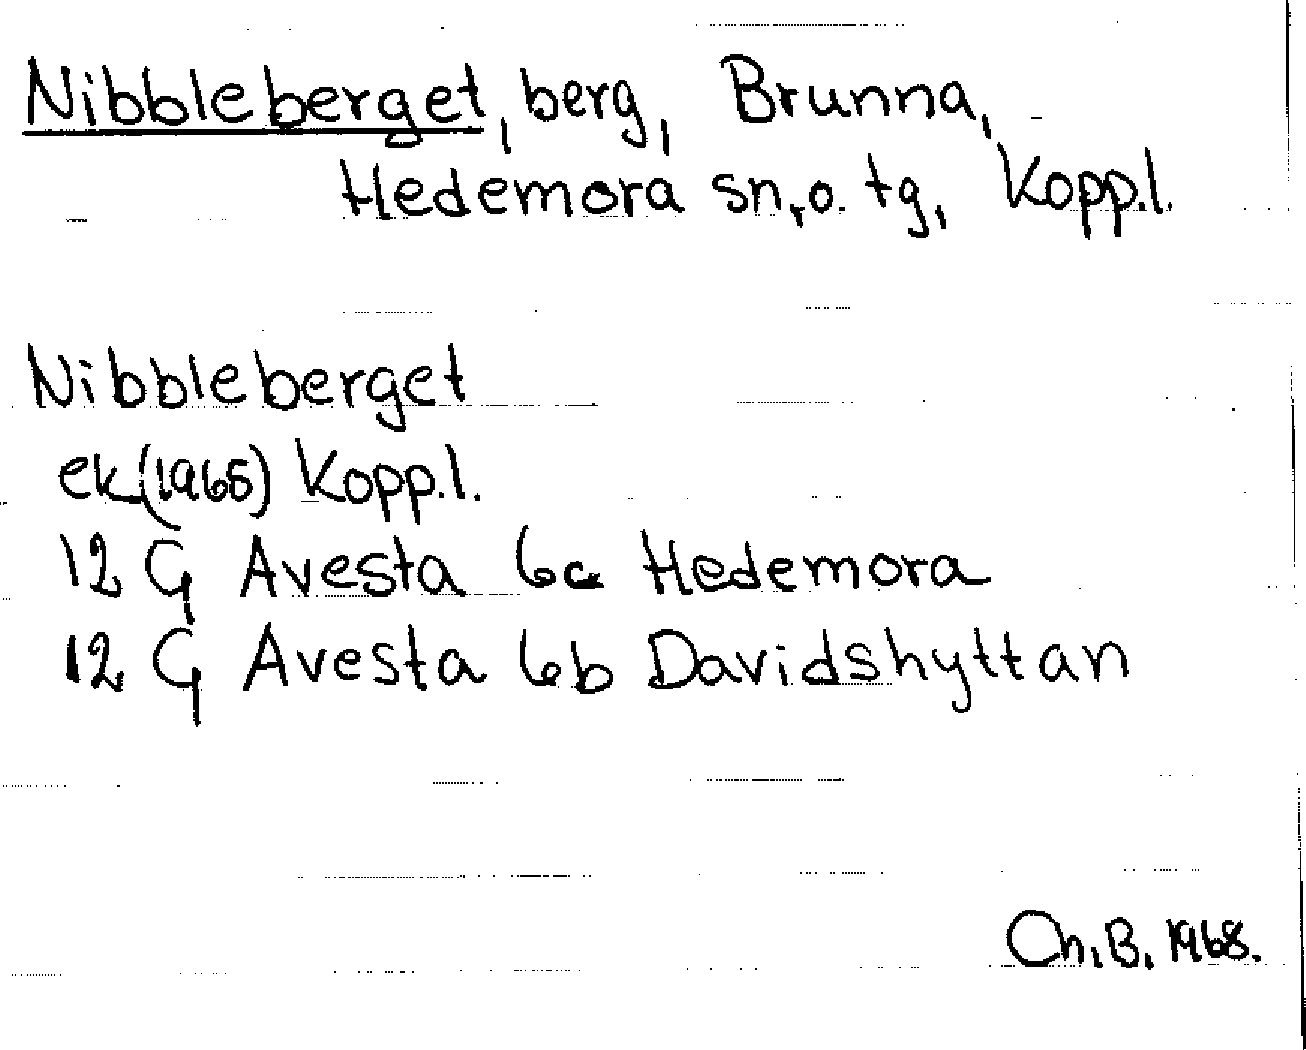 Nibbleberget, berg, Brunna,
Hedemora sn, o. tg, Kopp.l.
Nibbleberget
ek (1965) Kopp.l.
12 G Avesta 6c Hedemora
12 G Avesta 6b Davidshyttan
Ch.B. 1968.